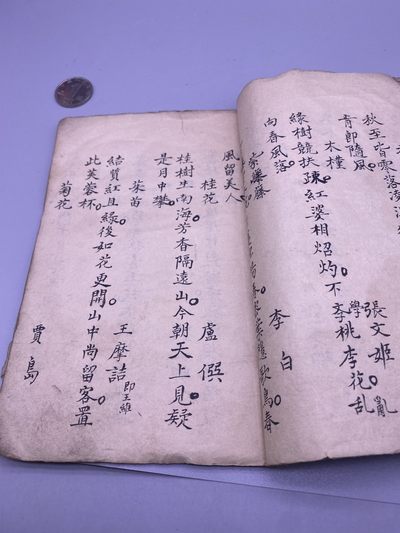 秋至皆零落凌
青郎隨風。
木槿 張文姬
綠樹競扶疎。紅婆相炤灼。不孝學桃李花。亂亂
向春風落。
藤 李白
歌鳥。春
風留美人
桂花 盧僎
桂樹生南海。芳香隔遠山。今朝天上見。疑
是月中攀。
茱苗 王摩詰即王維
結質紅且綠。後如花更開。山中尚留客置
此芙蓉杯。
菊花 賈島